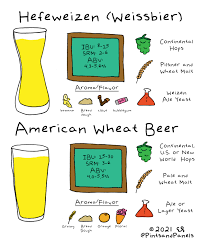 Hefeweizen (Weissbier)
IBU: 8-15
SRM: 2-6
ABV:
4.3-5.6%
Continental
Hops
Pilsner and
Wheat Malt
Weizen
Ale Yeast
Aroma/Flavor
banana
Bread
Dough
clove
bubblegum
American Wheat Beer
IBU: 15-30
SRM: 3-6
ABV:
4.0-5.5%
Continental,
U.S. or New
World Hops
Pale and
Wheat Malt
Ale or
Lager Yeast
Aroma/Flavor
Bread
Dough
Orange
Floral
© 2021
@PintsandPanels